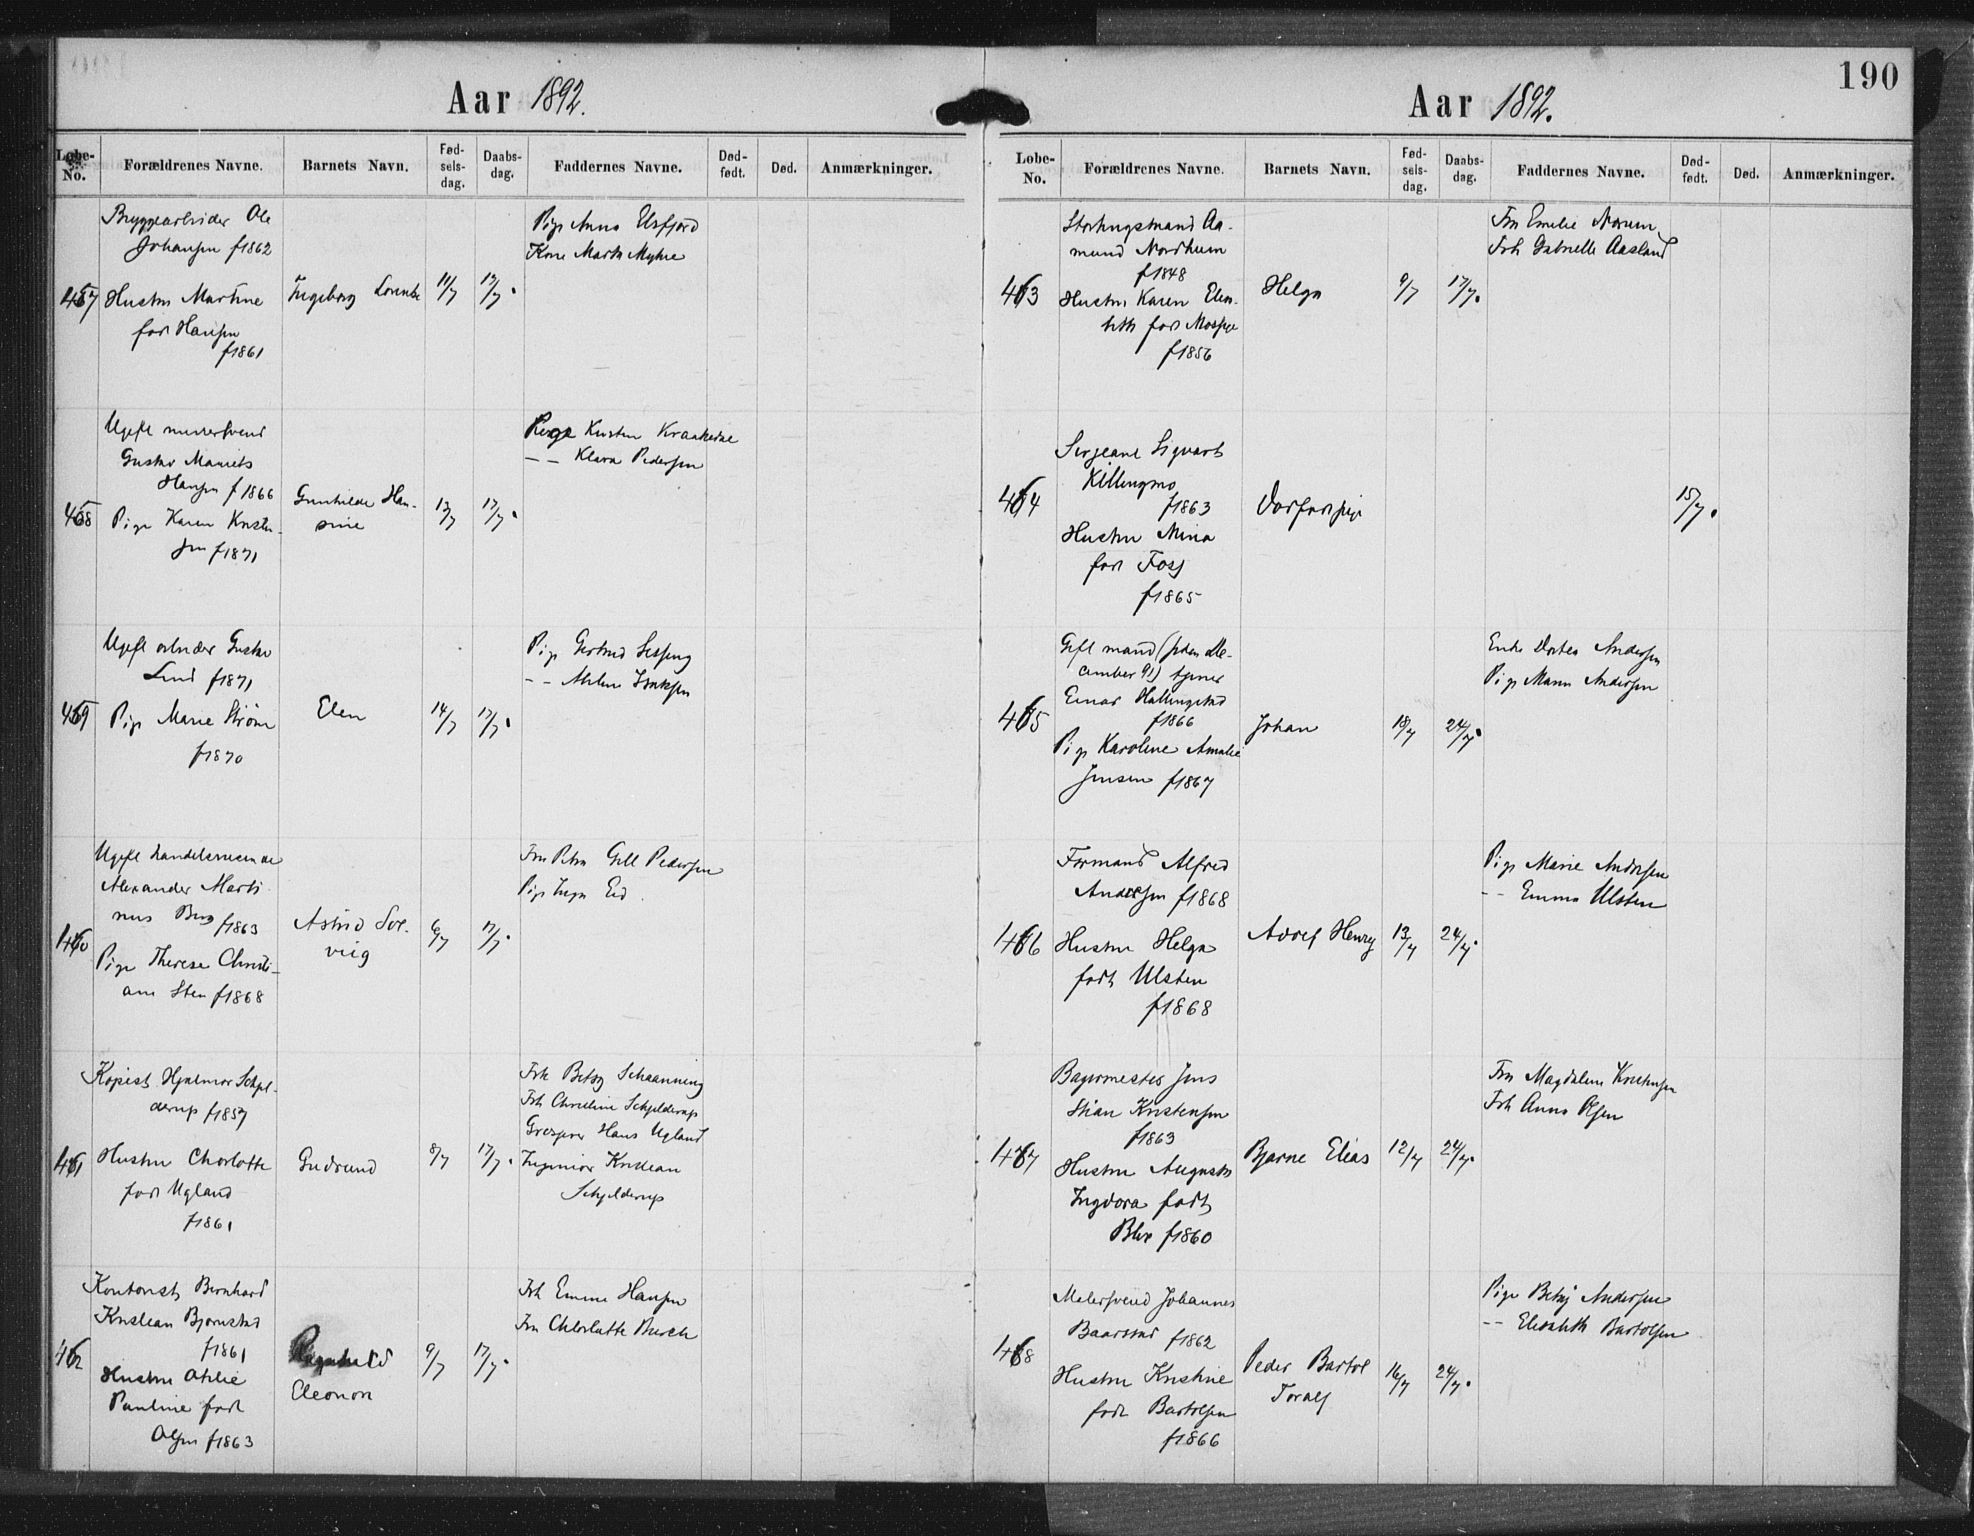 Aar 1892.
Løbe-No. Forældrenes Navne. Barnets Navn. Fød-sels-dag. Daabs-dag. Faddernes Navne. Død-født. Død. Anmærkninger.
Bryggearbeider Ole
Johansen f1862
457 Hustru Martine
født Hansen
f1861
Ingeborg
11/7
17/7.
Pige Anna Elsfjord
Kone Marth Myhre
Ugift murersvend
Gustav Maurits
Hansen f 1866
458 Pige Karen Kristen-
sen f1871
Gunhilde Han-
sine
13/7
17/7.
Pige Kirsten
-- Klara Pedersen
Ugift arbeider Gustav
Lind f1871
459 Pige Marie Strøm
f1870
Elen
14/7
17/7.
Pige Gertrud
-- Isaksen
Ugift handelsreisende
Alexander Marti-
nus Berg f1863
460 Pige Therese Christi-
ane Sten f1868
Astrid Sol-
veig
6/7
17/7.
Fru Petra Gill Pedersen
Pige Inga Eid
Kopist Hjalmar Schjel-
derup f1857
461 Hustru Charlotte
født Ugland
f1861
Gudrund
8/7
17/7.
Frk Betzy Schaanning
Frk Christine Schjelderup
Grosserer Hans Ugland
Ingeniør Kristian
Schjelderup
Kontorist Bernhard
Kristian Bjørnstad
f1861
462 Hustru Otilie
Pauline født
Olsen f1863
Ragnhild
Eleonora
9/7
17/7.
Frk Emma Hansen
Fru Charlotte Busch
190
Aar 1892.
Løbe-No. Forældrenes Navne. Barnets Navn. Fød-sels-dag. Daabs-dag. Faddernes Navne. Død-født. Død. Anmærkninger.
Storthingsmand Aa-
mund Nordheim
f1848
463 Hustru Karen Elisa-
beth født
f1856
Helga
9/7
17/7.
Fru Emilie Norum
Frk Gabrielle Aasland
Sergeant Sigvart
Killingmo
f1863
464 Hustru Mina
født Foss
f1865
Dødfødt pige
15/7.
Gift mand (siden De-
cember 91) tjener
Einar Hallingstad
f1866
465 Pige Karoline Amalie
Jensen f1867
Johan
18/7
24/7.
Enke Dortea Andersen
Pige Maren Andersen
Formand Alfred
Andersen f1868
466 Hustru Helga
født Ulsten
f1868
Adolf Henry
13/7
24/7.
Pige Marie Andersen
-- Emma Ulsten
Bagermester Jens
Stian Kristensen
f1863
467 Hustru Augusta
Ingvora født
Blix f1860
Bjarne Elias
12/7
24/7.
Fru Magdalene Kristensen
Frk Anna Olsen
Malersvend Johannes
Baarstad f1862
468 Hustru Kristine
født Bartolsen
f1866
Peder Bartol
Toralf
16/7
24/7.
Pige Betsy Andersen
-- Elisabeth Bartolsen